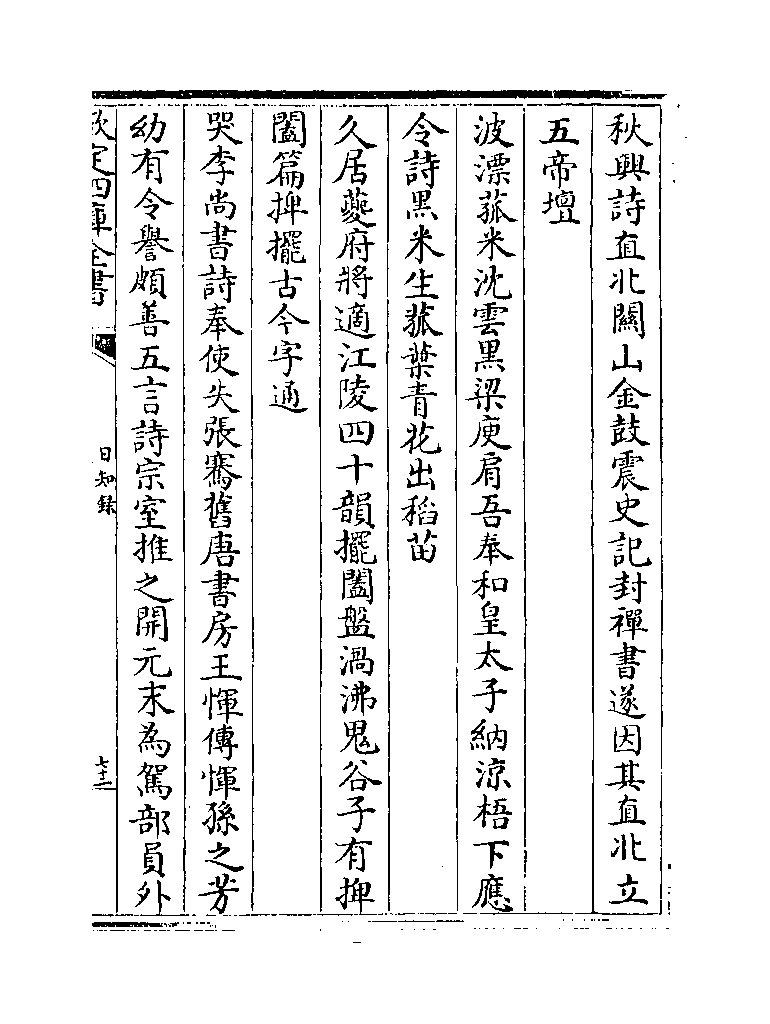 秋興詩直北關山金鼓震史記封禪書遂因其直北立
五帝壇
波漂菰米沈雲黑梁庾肩吾奉和皇太子納涼梧下應
令詩黒米生菰葉青花出稻苗
久居夔府將適江陵四十韻擺闔盤渦沸鬼谷子有捭
闔篇捭擺古今字通
哭李尚書詩奉使失張騫舊唐書房王惲傳惲孫之芳
幼有令譽頗善五言詩宗室推之開元末為駕部員外
欽定四庫全書
日知録
七十二